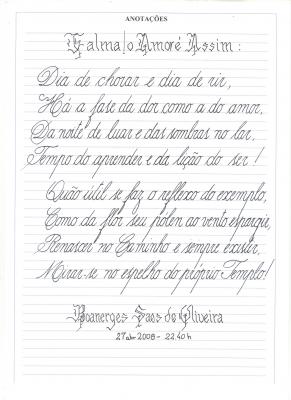 ANOTAÇÕES
Calma! o Amor é Assim:
Dia de chorar e dia de rir,
Há a fase da dor como a do amor,
Da noite de luar e das sombras no lar,
Tempo do aprender e da lição do ser!
Quão útil se faz o reflexo do exemplo,
Como da flor seu pólen ao vento espargir,
Renascer no Caminho e sempre existir,
Mirar-se no espelho do próprio Templo!
Boanerges Saes de Oliveira
27abr2008 - 22.40h